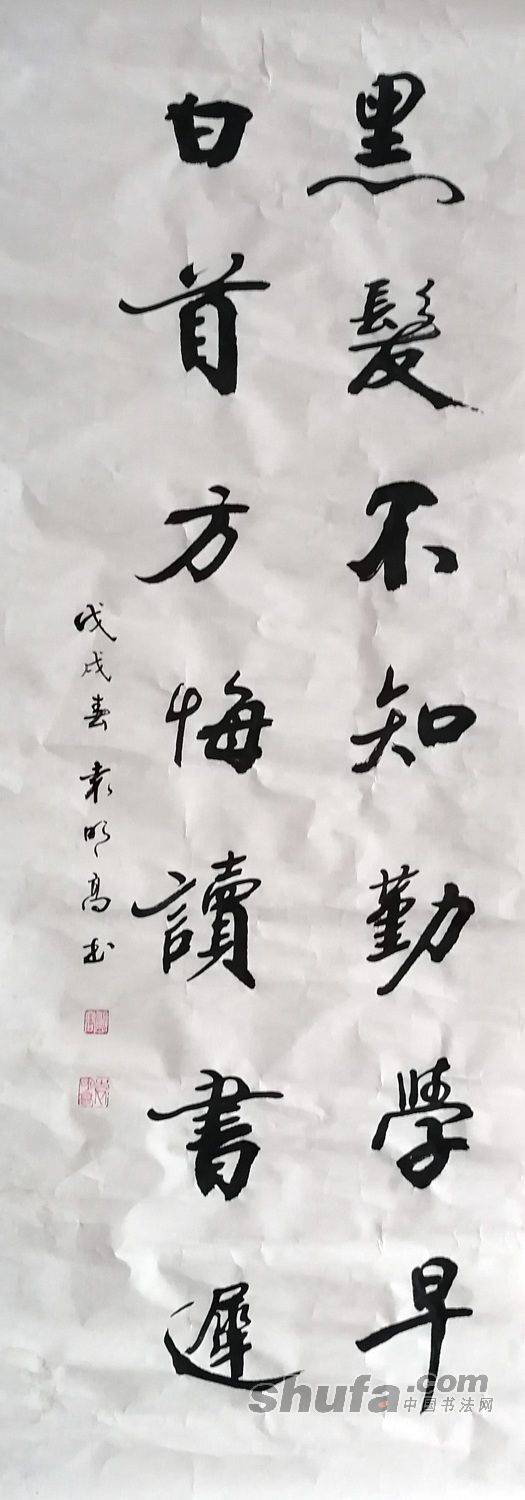 黑髮不知勤學早
白首方悔讀書遲
戊戌春袁明高书
shufa.com
中国书法网